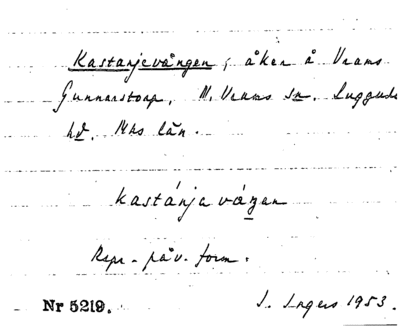 Kastanjevången, åker å Vrams
Gunnarstorp, N. Vrams sn. Luggude
hd. Mhs län.
kastánjavángan
Rspr - påv. form.
Nr 5219. I. Ingers 1953.